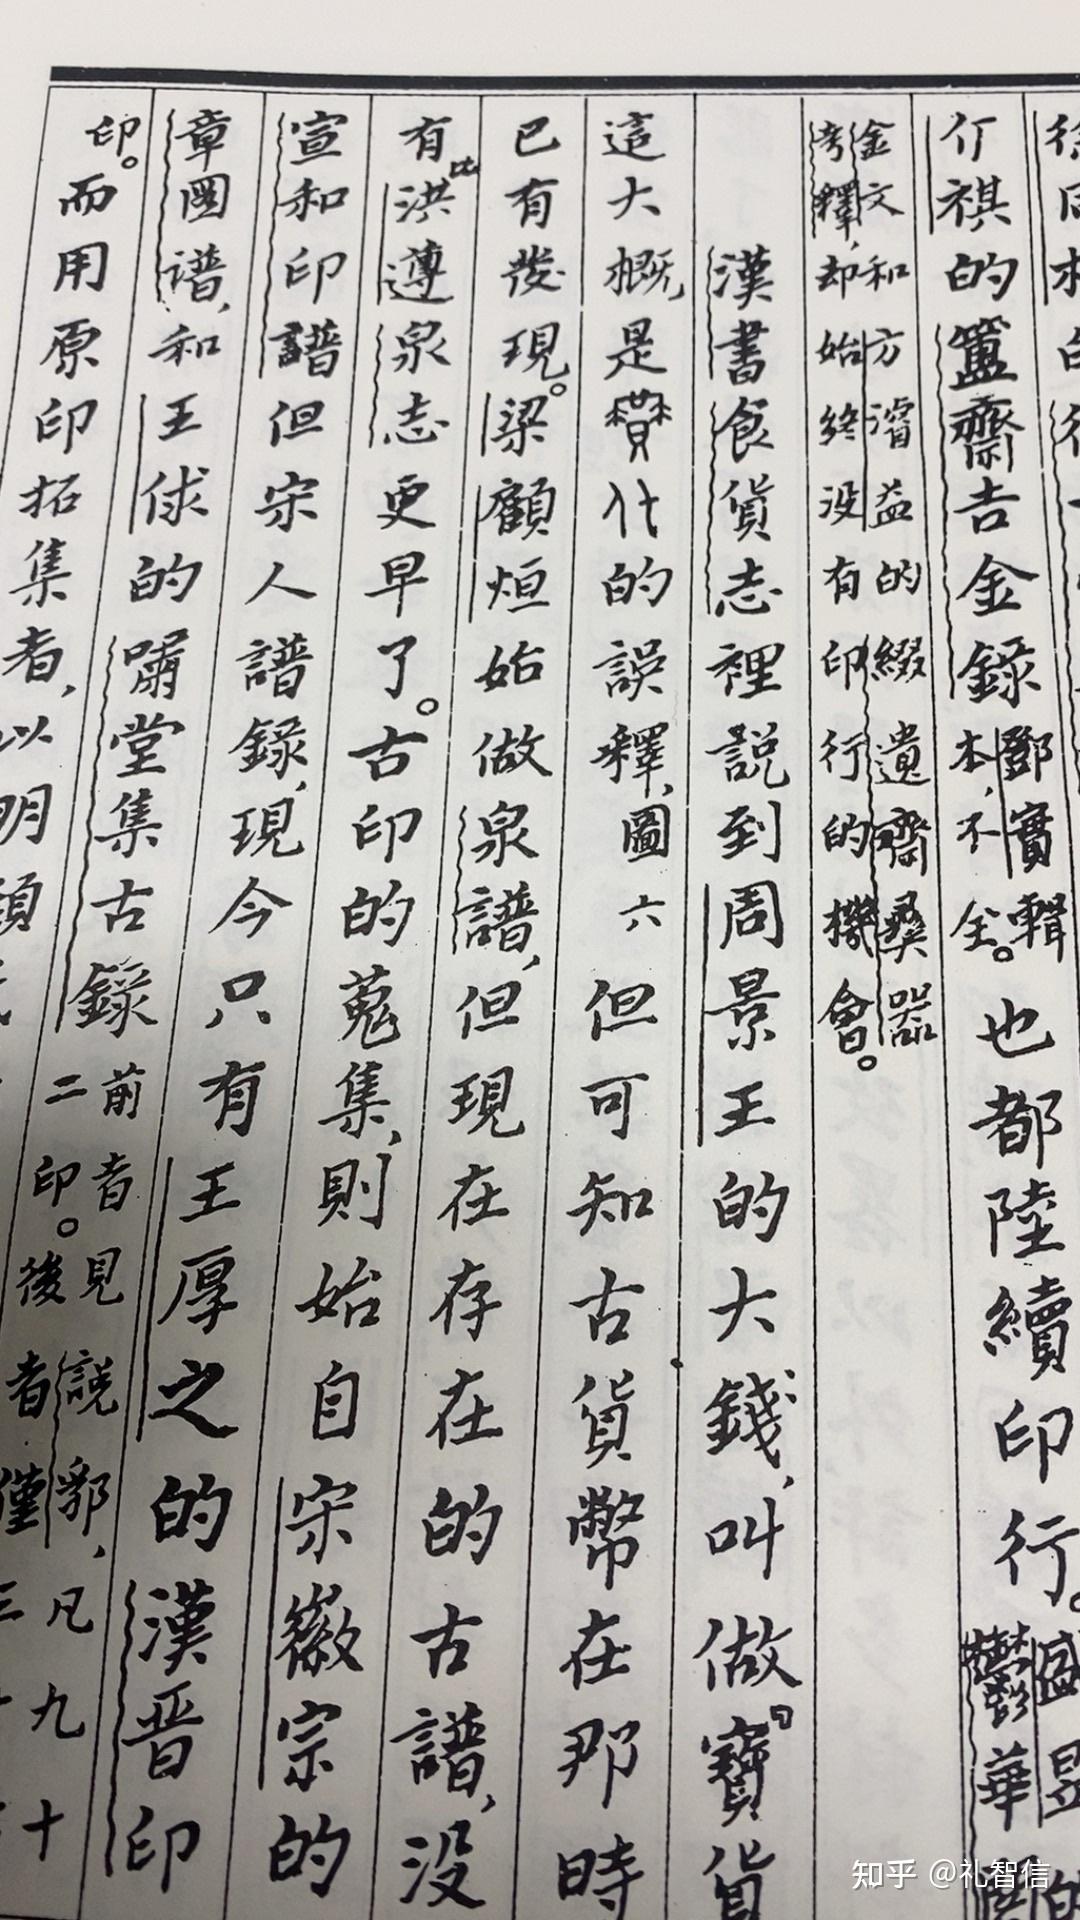 徐同柏的從
介祺的簠齋吉金錄鄧實輯本，不全。也都陸續印行。盛昱的鬱華閣
金文和方濬益的綴遺齋彝器考釋，却始終没有印行的機會。
漢書食貨志裡説到周景王的大錢，叫做『寶貨
這大概，是代的誤釋，圖六但可知古貨幣在那時
已有發現。梁顧烜始做泉譜，但現在存在的古譜，没
有比洪遵泉志更早了。古印的蒐集，則始自宋徽宗的
宣和印譜但宋人譜錄，現今只有王厚之的漢晋印
章圖譜，和王俅的嘯堂集古錄前者見説郛，凡九十二印。後者僅三十
印。而用原印拓集者，以明顧氏
知乎 @礼智信